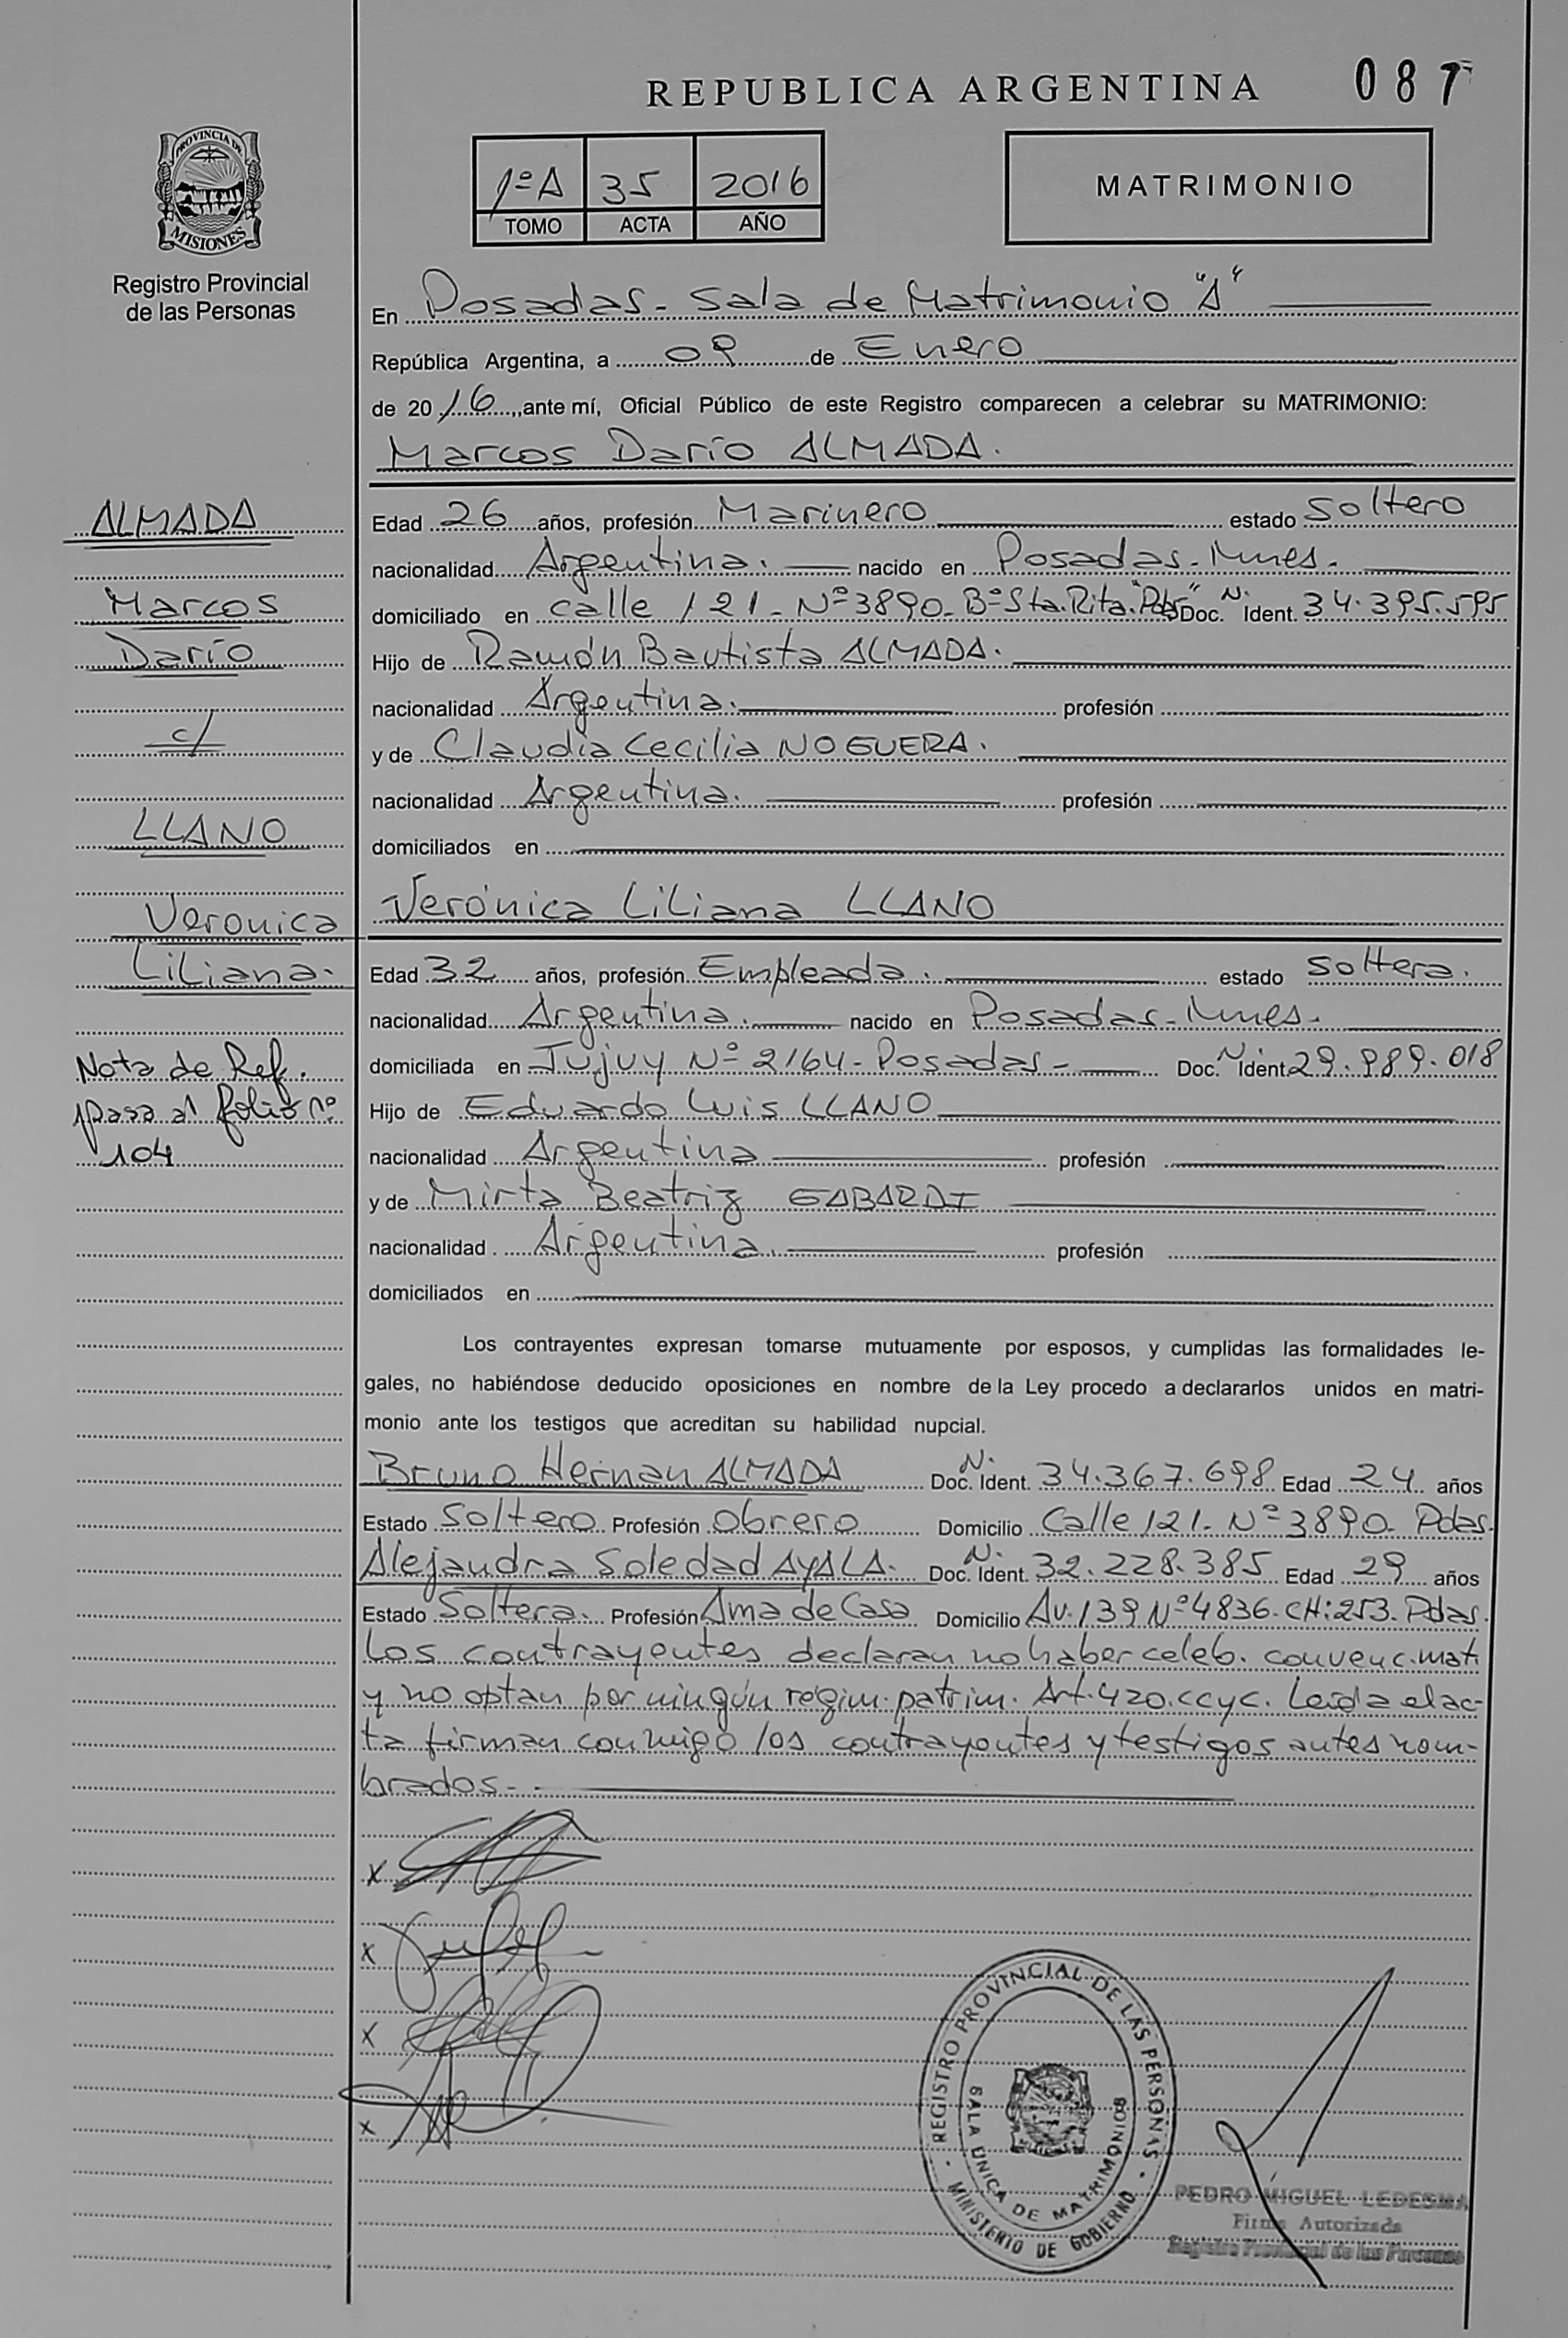 REPUBLICA ARGENTINA 087
PROVINCIA DE
MISIONES
Registro Provincial
de las Personas
1ºA 35 2016
TOMO ACTA AÑO
MATRIMONIO
En Posadas- Sala de Matrimonio "A"
República Argentina, a 09 de Enero
de 2016, ante mí, Oficial Público de este Registro comparecen a celebrar su MATRIMONIO:
Marcos Darío ALMADA.
ALMADA
Marcos
Darío
c/
LLANO
Veronica
Liliana.
Nota de Ref.
pasa al folio nº
104
Edad 26 años, profesión Marinero estado Soltero
nacionalidad Argentina. nacido en Posadas-Mnes.
domiciliado en calle 121- Nº3890- Bº Sta. Rita. "Pdas" Doc. N. Ident. 34.395.595
Hijo de Ramón Bautista ALMADA.
nacionalidad Argentina. profesión
y de Claudia Cecilia NOGUERA.
nacionalidad Argentina. profesión
domiciliados en
Verónica Liliana LLANO
Edad 32 años, profesión Empleada. estado Soltera.
nacionalidad Argentina. nacido en Posadas-Mnes.
domiciliada en Jujuy Nº 2164- Posadas- Doc. N. Ident. 29.989.018
Hijo de Eduardo Luis LLANO
nacionalidad Argentina profesión
y de Mirta Beatriz GABARDI
nacionalidad Argentina. profesión
domiciliados en
Los contrayentes expresan tomarse mutuamente por esposos, y cumplidas las formalidades le-
gales, no habiéndose deducido oposiciones en nombre de la Ley procedo a declararlos unidos en matri-
monio ante los testigos que acreditan su habilidad nupcial.
Bruno Hernan ALMADA Doc. N. Ident. 34.367.698 Edad 24 años
Estado Soltero Profesión Obrero Domicilio Calle 121- Nº3890- Pdas.
Alejandra Soledad AYALA. Doc. N. Ident. 32.228.385 Edad 29 años
Estado Soltera. Profesión Ama de Casa Domicilio Av. 139 Nº4836. CH:253. Pdas.
Los contrayentes declaran no haber celeb. convenc. mat.
y no optan por ningún régim. patrim. Art. 420. ccyc. Leída el ac-
ta firman conmigo los contrayentes y testigos antes nom-
brados-
x
x
x
x
REGISTRO PROVINCIAL DE LAS PERSONAS
SALA UNICA DE MATRIMONIOS
MINISTERIO DE GOBIERNO
PEDRO MIGUEL LEDESMA
Firma Autorizada
Registro Provincial de las Personas